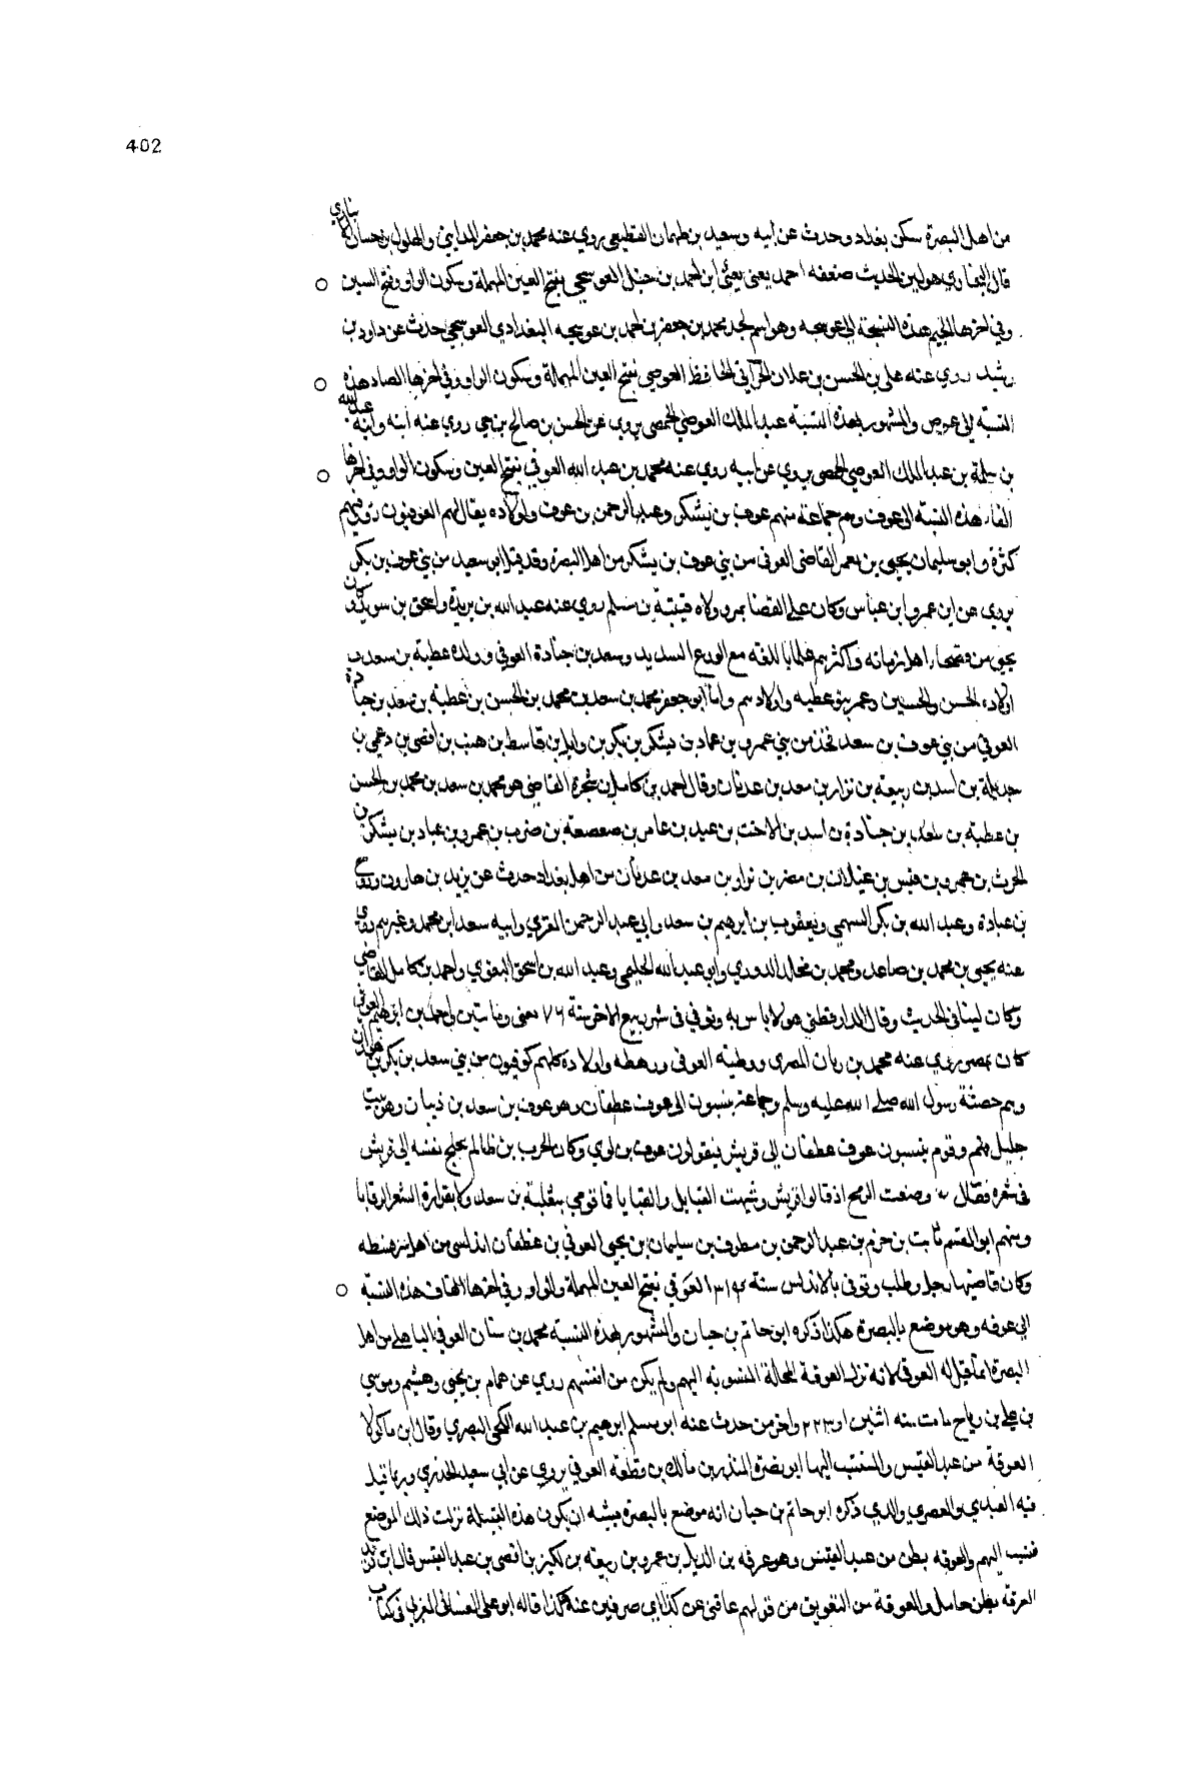 402
من اهل البصرة سكن بغداد وحدث عن ابيه وسعيد بن طهمان القطيعي روي عنه محمد بن جعفر المدايني والبهلول بن حسان
قال البخاري هو لين الحديث ضعفه احمد يعني يحيى ابن احمد بن حنبل العوسجي بفتح العين المهملة وسكون الواو وفتح السين
وفي اخرها الجيم هذه النسبة الى عوسجه وهو اسم لجد محمد بن جعفر بن احمد بن عوسجه البغدادي العوسجي حدث عن داود بن
رشيد روي عنه علي بن الحسن بن علان الحراني الحافظ العوصي بفتح العين المهملة وسكون الواو وفي اخرها الصاد هذه
النسبة الى عوص والمشهور بهذه النسبة عبد الملك العوصي الحمصي يروي عن الحسن بن صالح بن حي روي عنه ابنه وابنه عبد الله
بن سلمة بن عبد الملك العوصي الحمصي يروي عن ابيه روي عنه محمد بن عبد الله العوفي بفتح العين وسكون الواو وفي اخرها
الفاء هذه النسبة الى عوف وهم جماعة منهم عوف بن يشكر وعبد الرحمن بن عوف واولاده يقال لهم العوفيون وفيهم
كثرة وابو سليمان يحيى بن يعمر القاضي العوفي من بني عوف بن يشكر من اهل البصرة وقد قيل ابو سعيد من بني عوف بن بكر
يروي عن ابن عمر وابن عباس وكان على القضا بمرو ولاه قتيبة بن مسلم روي عنه عبد الله بن بريدة واسحق بن سويد وكان
يحيى من فصحاء اهل زمانه واكثرهم علما باللغة مع الورع الشديد وسعد بن جنادة العوفي وولده عطية بن سعد
اولاده الحسن والحسين وعمر بنو عطيه واولادهم واما ابو جعفر محمد بن سعد بن محمد بن الحسن بن عطية بن سعد بن جنادة
العوفي من بني عوف بن سعد فخذ من بني عمرو بن عباد بن يشكر بن بكر بن وايل بن قاسط بن هنب بن افصى بن دعمي بن
جديلة بن اسد بن ربيعة بن نزار بن معد بن عدنان وقال احمد بن كامل بن شجرة القاضي هو محمد بن سعد بن محمد بن الحسن
بن عطية بن سعد بن جنادة بن اسد بن لاحب بن عبد بن عامر بن صعصعة بن ضرب بن عمرو بن عباد بن يشكر بن
الحرث بن عمرو بن قيس بن عيلان بن مضر بن نزار بن معد بن عدنان من اهل بغداد حدث عن يزيد بن هارون وروح
بن عبادة وعبد الله بن بكر السهمي ويعقوب بن ابرهيم بن سعد وابي عبد الرحمن المقري وابيه سعد ابن محمد وغيرهم روي
عنه يحيى بن محمد بن صاعد ومحمد بن مخلد الدوري وابو عبد الله الحليمي وعبد الله بن اسحق البغوي واحمد بن كامل القاضي
وكان لينا في الحديث وقال الدارقطني هو لا باس به وتوفي في شهر ربيع الاخر سنة ٧٦ يعني وماتين واحمد بن ابرهيم العوفي
كان بمصر روي عنه محمد بن ربان المصري وعطية العوفي ورهطه واولاده كلهم كوفيون من بني سعد بن بكر بن هوازن
وهم حضنة رسول الله صلى الله عليه وسلم وجماعة ينسبون الى عوف غطفان وهو عوف بن سعد بن ذبيان وهو بيت
جليل منهم وقوم ينسبون عوف غطفان الى قريش فيقولون عوف بن لوي وكان الحرث بن ظالم يخلج نفسه الى قريش
في شعره فقال وضعت الرمح اذ قالوا قريش وشبهت القبايل والقبابا فما قومي بثعلبة بن سعد ولا بفزارة الشعر الرقابا
ومنهم ابو القسم ثابت بن حزم بن عبد الرحمن بن مطرف بن سليمان بن يحيى العوفي بن غطفان اندلسي من اهل سرقسطه
وكان قاضيها رحل وطلب وتوفي بالاندلس سنة ٣١٤ العوقي بفتح العين المهملة والواو وفي اخرها القاف هذه النسبة
الى عوقه وهو موضع بالبصرة هكذا ذكره ابو حاتم بن حبان والمشهور بهذه النسبة محمد بن سنان العوقي الباهلي من اهل
البصرة انما قيل له العوقي لانه نزل العوقة المحالة المنسوبة اليهم ولم يكن من انفسهم روي عن همام بن يحيى وهشيم وموسي
بن علي بن رياح مات سنه اثنين او ٢٢٣ واخر من حدث عنه ابو مسلم ابرهيم بن عبد الله الكجي البصري وقال ابن ماكولا
العوقة من عبد القيس والمنتسب اليها ابو نضرة المنذر بن مالك بن قطعه العوقي يروي عن ابي سعيد الخدري وربما قيل
فيه العبدي والعصري والذي ذكره ابو حاتم بن حبان انه موضع بالبصرة يشبه ان يكون هذه القبيلة نزلت ذلك الموضع
فنسب اليهم والعوقه بطن من عبد القيس وهو عوقه بن الديل بن عمرو بن وديعه بن لكيز بن افصى بن عبد القيس قال ابن دريد
العوقه بطن حامل والعوقة من التعويق من قولهم عاقني عن كذا اي صرفني عنه هكذا قاله ابو علي الغساني المغربي في كتاب